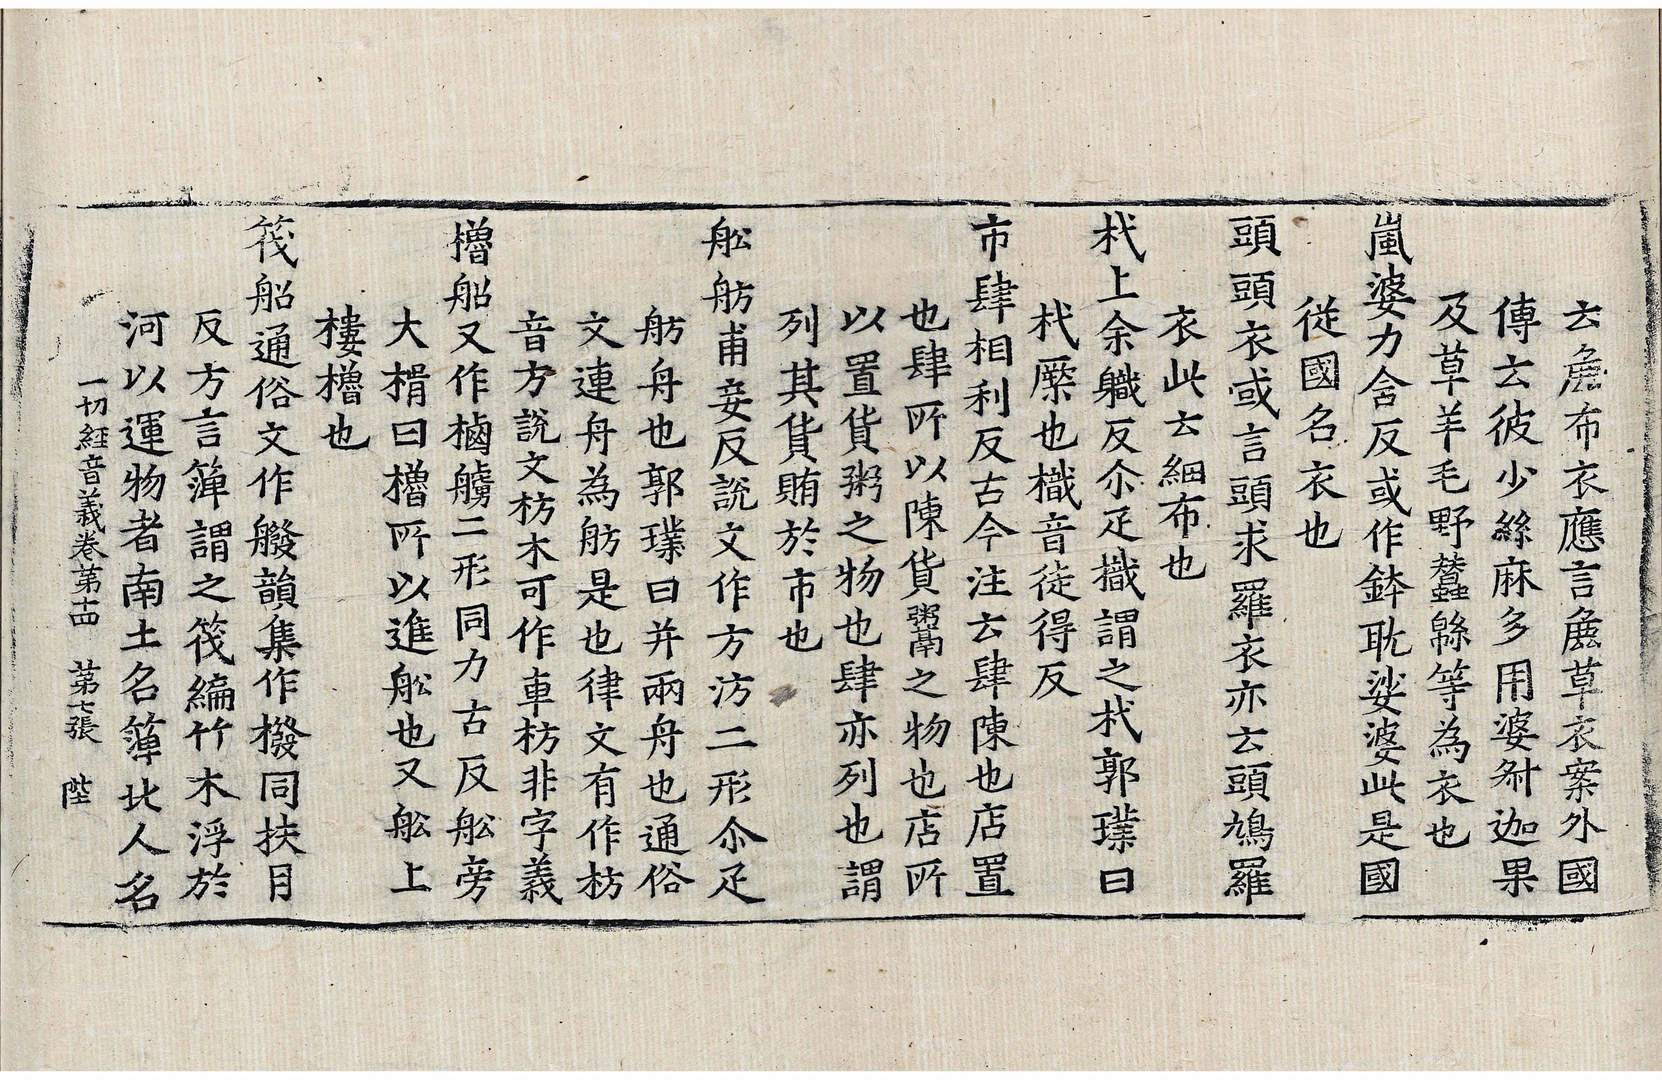 云麁布衣應言麁草衣案外國
傳云彼少絲麻多用婆𣂏迦果
及草羊毛野蠶緜等為衣也
嵐婆力含反或作鉢耽娑婆此是國
從國名衣也
頭頭衣或言頭求羅衣亦云頭鳩羅
衣此云細布也
杙上余軄反尒疋樴謂之杙郭璞曰
杙橜也樴音徒得反
市肆相利反古今注云肆陳也店置
也肆所以陳貨鬻之物也店所
以置貨粥之物也肆亦列也謂
列其貨賄於市也
舩舫甫妄反說文作方汸二形尒疋
舫舟也郭璞曰并兩舟也通俗
文連舟為舫是也律文有作枋
音方說文枋木可作車枋非字義
櫓船又作樐艣二形同力古反舩旁
大楫曰櫓所以進舩也又舩上
樓櫓也
筏船通俗文作艬韻集作橃同扶月
反方言簰謂之筏編竹木浮於
河以運物者南土名簰北人名
一切經音義卷第十四 第七張 陛